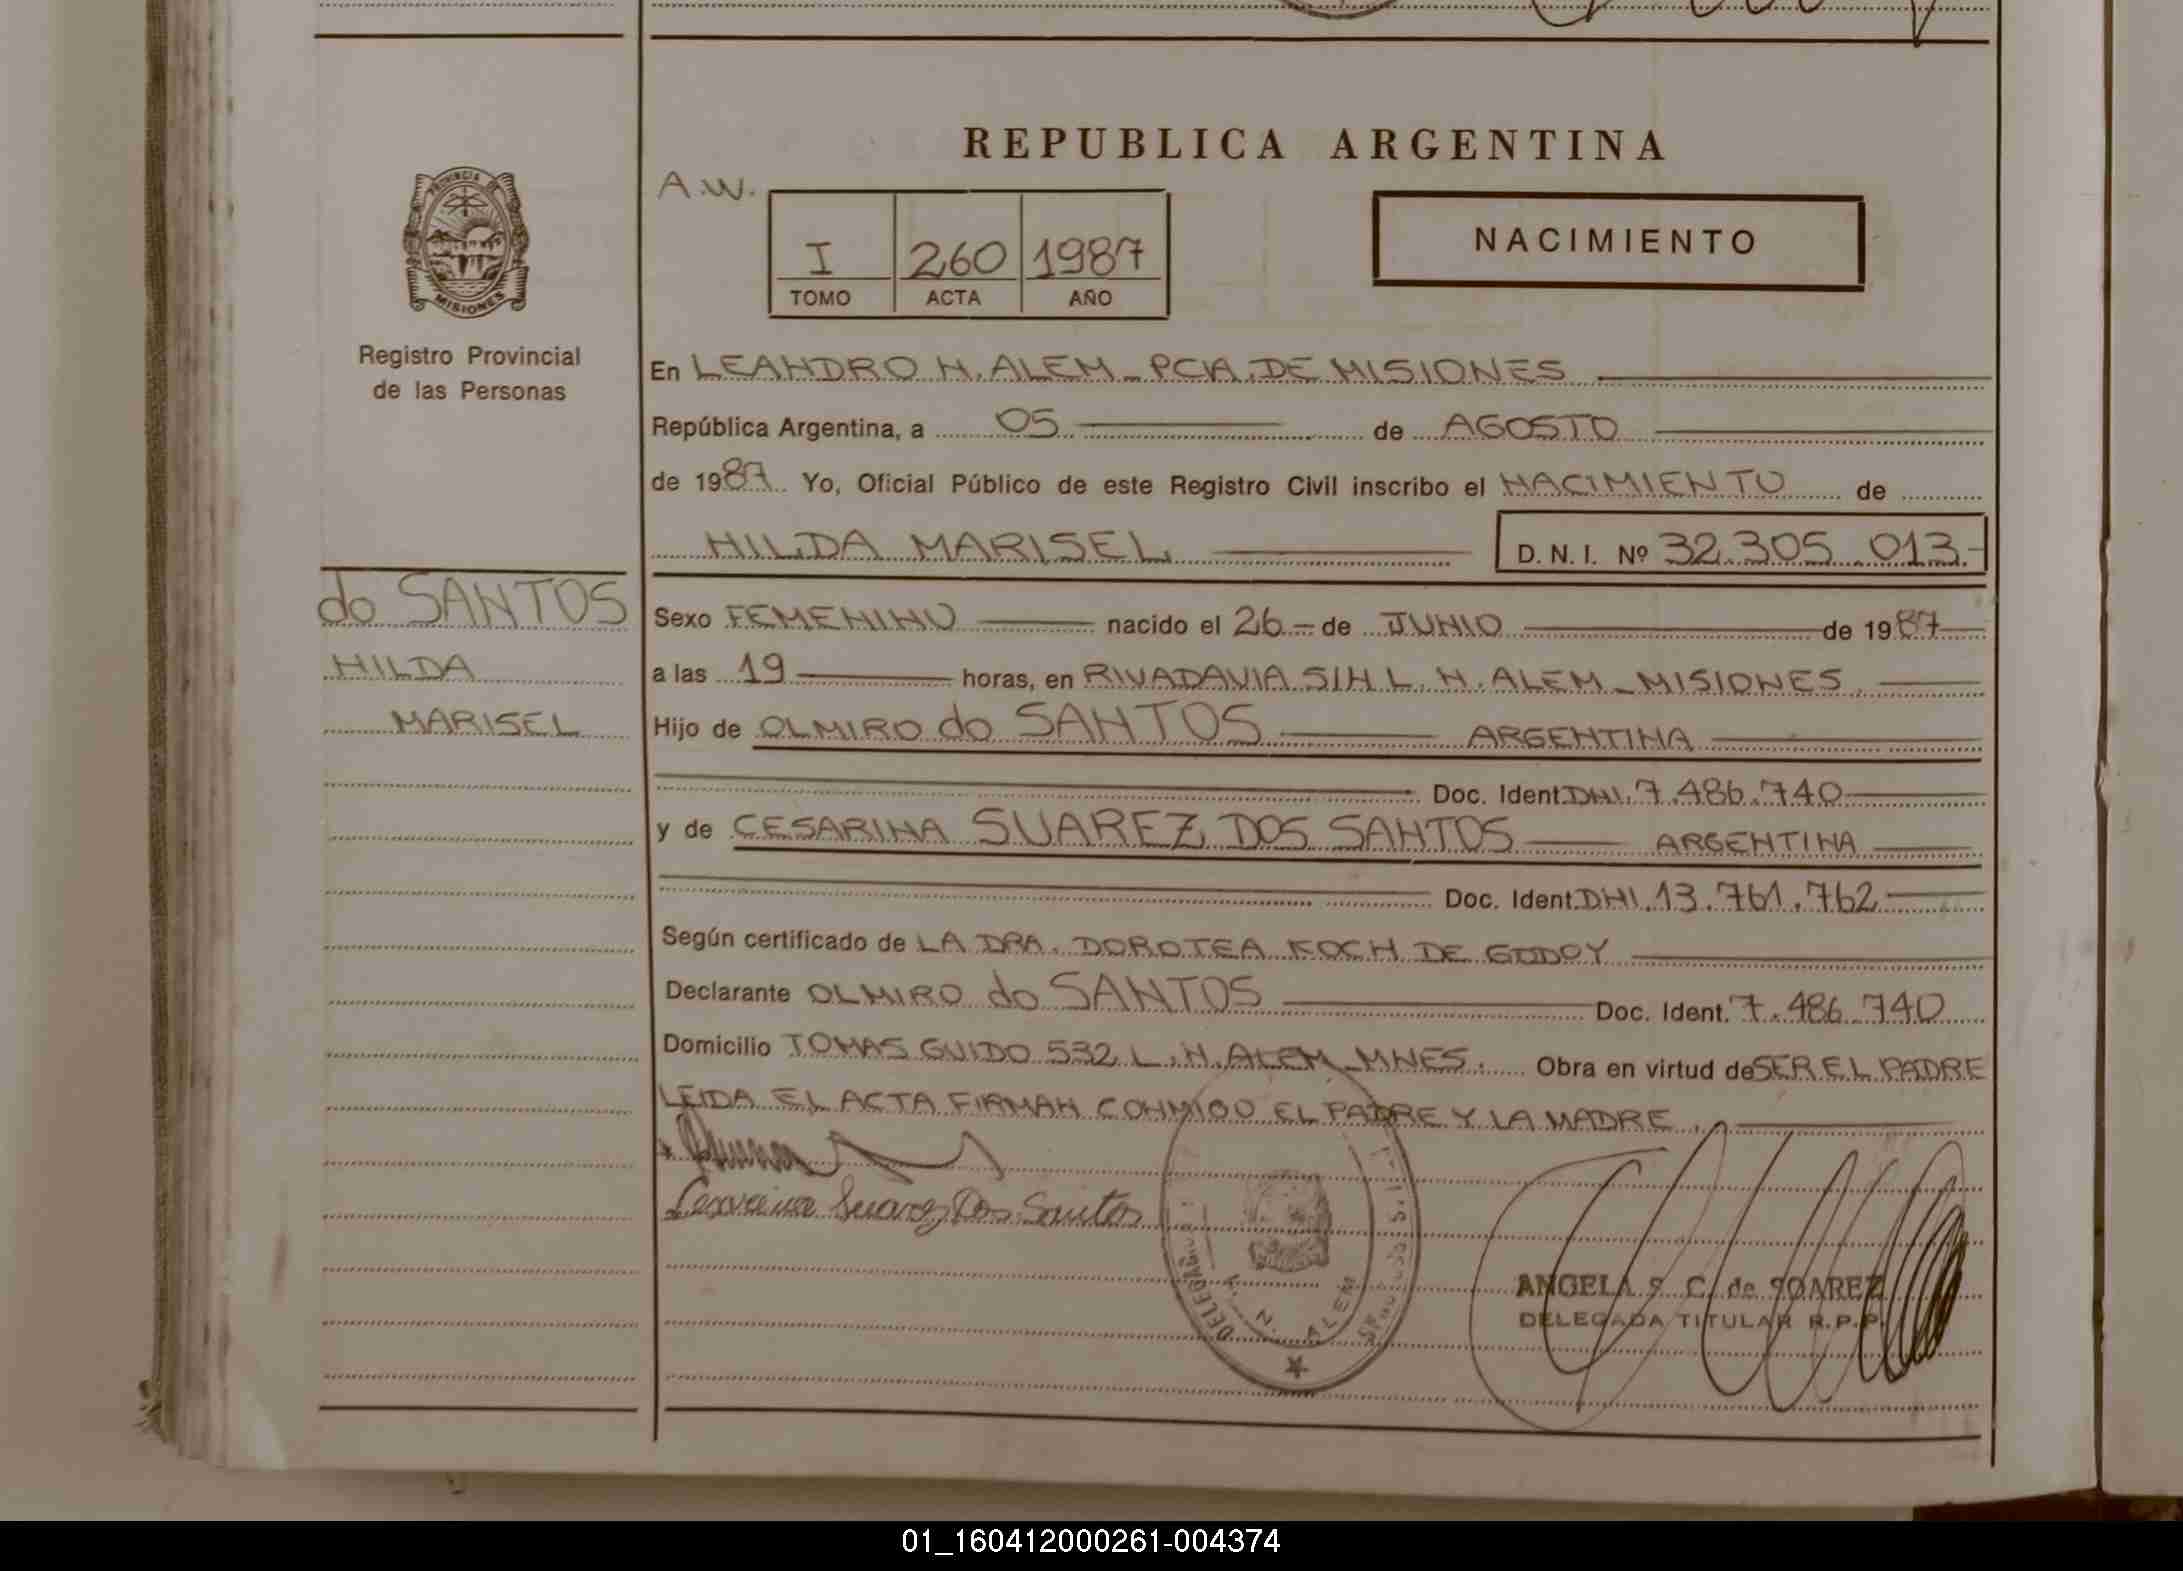 REPUBLICA ARGENTINA
A.W.
I 260 1987
TOMO ACTA AÑO
NACIMIENTO
PROVINCIA DE
MISIONES
Registro Provincial
de las Personas
En LEANDRO N. ALEM - PCIA. DE MISIONES
República Argentina, a 05 de AGOSTO
de 1987. Yo, Oficial Público de este Registro Civil inscribo el NACIMIENTO de
HILDA MARISEL D. N. I. Nº 32.305.013.-
do SANTOS
HILDA
MARISEL
Sexo FEMENINO nacido el 26 - de JUNIO de 1987
a las 19 horas, en RIVADAVIA S/N L. N. ALEM - MISIONES
Hijo de OLMIRO do SANTOS ARGENTINA
Doc. Ident. DNI. 7.486.740
y de CESARINA SUAREZ DOS SANTOS ARGENTINA
Doc. Ident. DNI. 13.761.762
Según certificado de LA DRA. DOROTEA KOCH DE GODOY
Declarante OLMIRO do SANTOS Doc. Ident. 7.486.740
Domicilio TOMAS GUIDO 532 L. N. ALEM - MNES. Obra en virtud de SER EL PADRE
LEIDA EL ACTA FIRMAN CONMIGO EL PADRE Y LA MADRE.
Suarez Dos Santos
DELEGACION
L. N. ALEM
ANGELA S. C. de SOAREZ
DELEGADA TITULAR R.P.P.
01_160412000261-004374